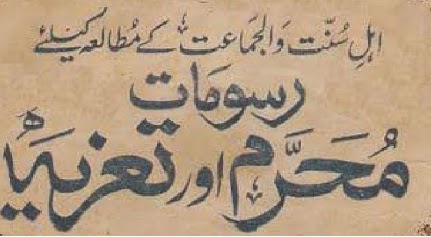 اہلِ سُنّت وَالجماعت کے مُطالعہ کیلئے
رسومات
مُحَرَّم اور تعزیہ